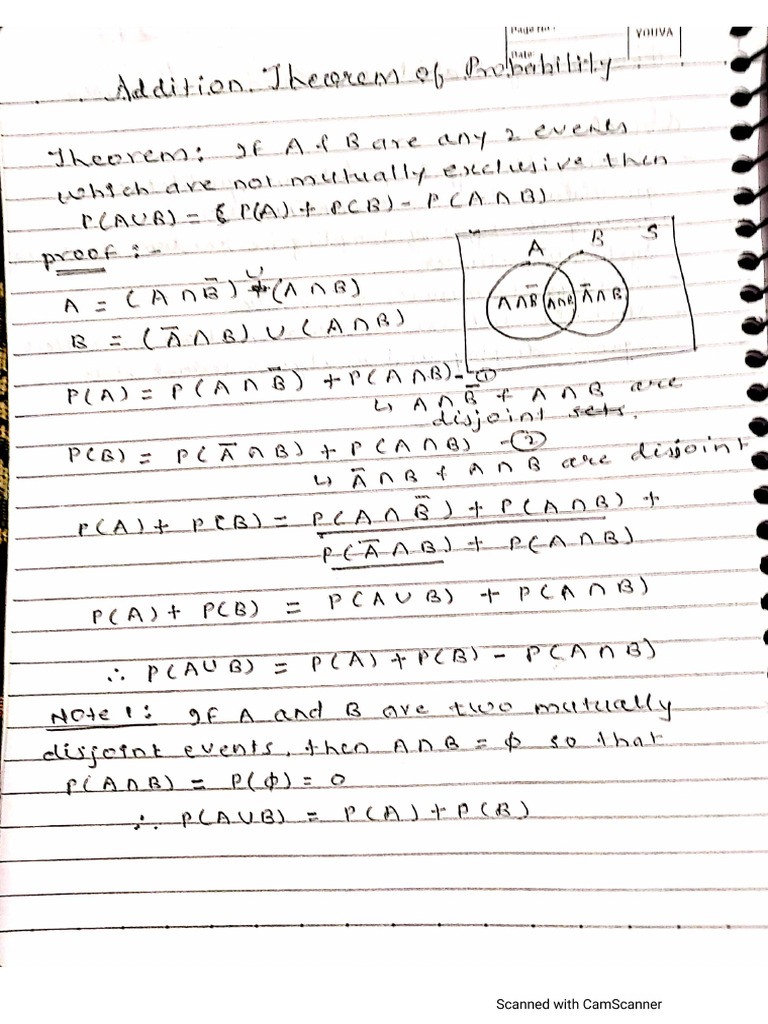 Page No.:
Date:
YOUVA
Addition Theorem of Probability
Theorem: If A & B are any 2 events
which are not mutually exclusive then
P(A∪B) = P(A) + P(B) - P(A∩B)
proof :-
A B S
A∩B̅ A∩B A̅∩B
A = (A∩B̅) ∪ (A∩B)
B = (A̅∩B) ∪ (A∩B)
P(A) = P(A∩B̅) + P(A∩B) - ①
↳ A∩B̅ & A∩B are
disjoint sets.
P(B) = P(A̅∩B) + P(A∩B) - ②
↳ A̅∩B & A∩B are disjoint
P(A) + P(B) = P(A∩B̅) + P(A∩B) +
P(A̅∩B) + P(A∩B)
P(A) + P(B) = P(A∪B) + P(A∩B)
∴ P(A∪B) = P(A) + P(B) - P(A∩B)
Note 1: If A and B are two mutually
disjoint events, then A∩B = ϕ so that
P(A∩B) = P(ϕ) = 0
∴ P(A∪B) = P(A) + P(B)
Scanned with CamScanner